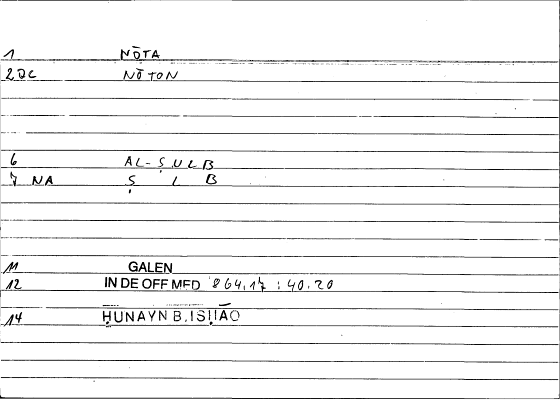 1 NŌTA
2 DC NŌTON
6 AL-ṢULB
7 NA Ṣ L B
11 GALEN
12 IN DE OFF MED 864,17 : 40.20
14 ḤUNAYN B. ISḤĀQ